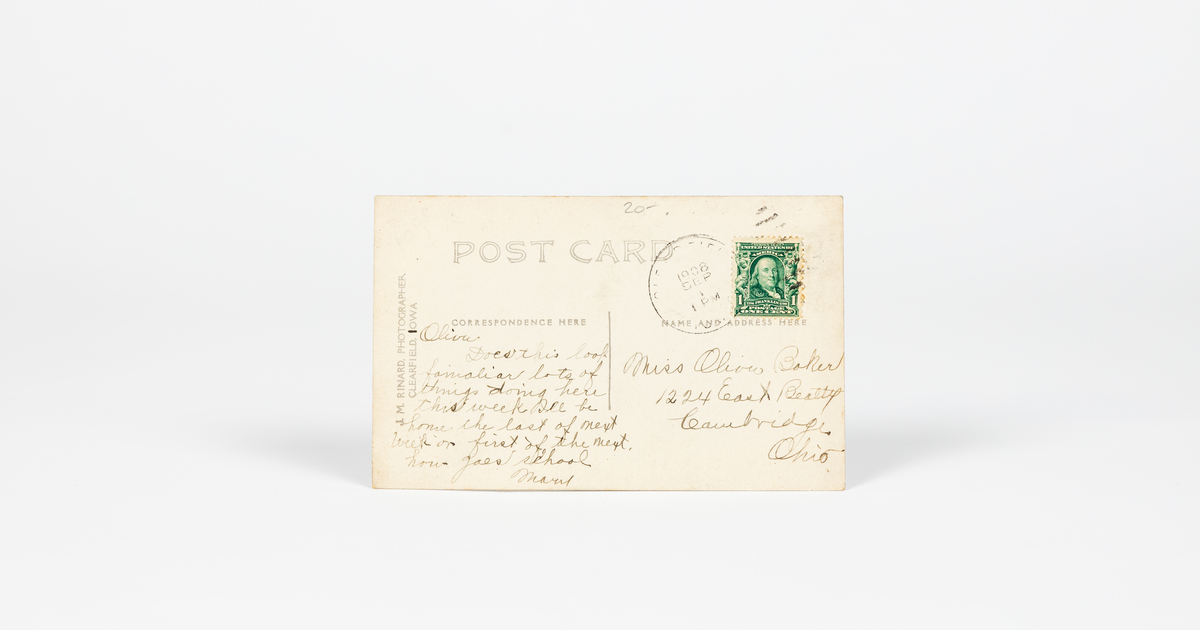 20-
POST CARD
1908
SEP
1
1 PM
UNITED STATES OF
AMERICA
1 1
POSTAGE
ONE CENT
J. M. RINARD, PHOTOGRAPHER,
CLEARFIELD, IOWA
CORRESPONDENCE HERE
NAME AND ADDRESS HERE
Olive
Does this look
familiar lots of
things doing here
this week Ill be
home the last of next
week or first of the next.
how goes school
Mary
Miss Olive Baker
1224 East Beatty
Cambridge
Ohio